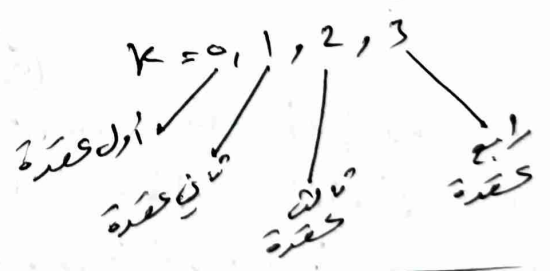 K = 0, 1, 2, 3
أول عقدة
ثاني عقدة
ثالث
عقدة
رابع
عقدة